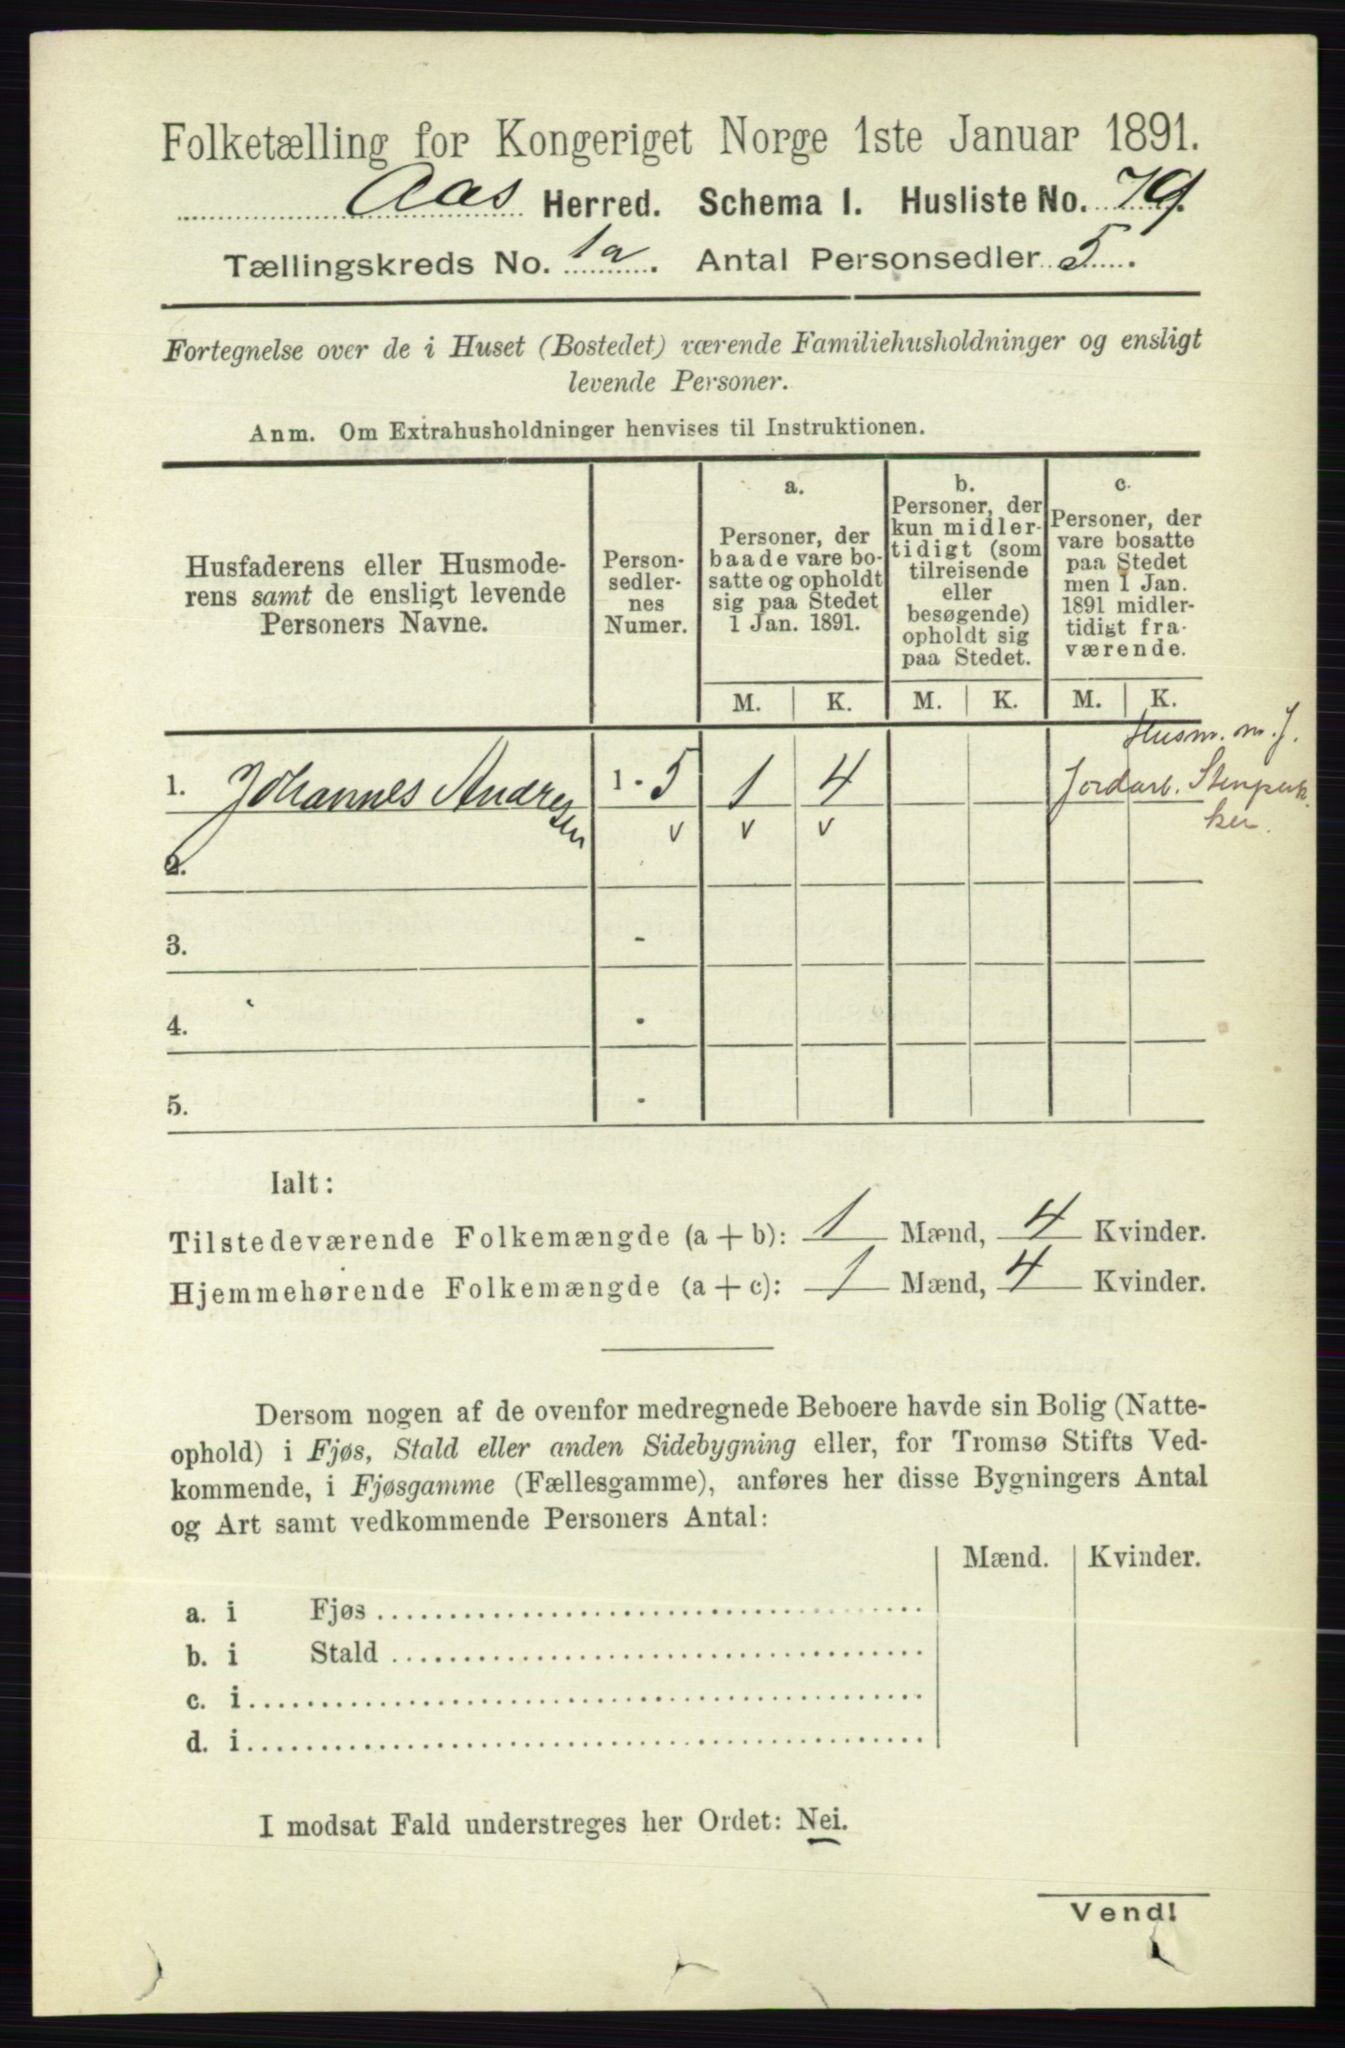 Folketælling for Kongeriget Norge 1ste Januar 1891.
Aas Herred. Schema I. Husliste No. 79.
Tællingskreds No. 1a. Antal Personsedler 5.
Fortegnelse over de i Huset (Bostedet) værende Familiehusholdninger og ensligt
levende Personer.
Anm. Om Extrahusholdninger henvises til Instruktionen.
Husfaderens eller Husmode-
rens samt de ensligt levende
Personers Navne.
Person-
sedler-
nes
Numer.
a.
Personer, der
baade vare bo-
satte og opholdt
sig paa Stedet
1 Jan. 1891.
b.
Personer, der
kun midler-
tidigt (som
tilreisende
eller
besøgende)
opholdt sig
paa Stedet.
c.
Personer, der
vare bosatte
paa Stedet
men 1 Jan.
1891 midler-
tidigt fra-
værende.
M. K. M. K. M. K.
Husm. m. J.
1. Johannes Andresen 1 - 5 1 4 Jordarb. Stenpuk
ker.
v v v
2.
3. -
4. -
5. -
Ialt:
Tilstedeværende Folkemængde (a + b): 1 Mænd, 4 Kvinder.
Hjemmehørende Folkemængde (a + c): 1 Mænd, 4 Kvinder.
Dersom nogen af de ovenfor medregnede Beboere havde sin Bolig (Natte-
ophold) i Fjøs, Stald eller anden Sidebygning eller, for Tromsø Stifts Ved-
kommende, i Fjøsgamme (Fællesgamme), anføres her disse Bygningers Antal
og Art samt vedkommende Personers Antal:
Mænd. Kvinder.
a. i Fjøs
b. i Stald
c. i
d. i
I modsat Fald understreges her Ordet: Nei.
Vend!